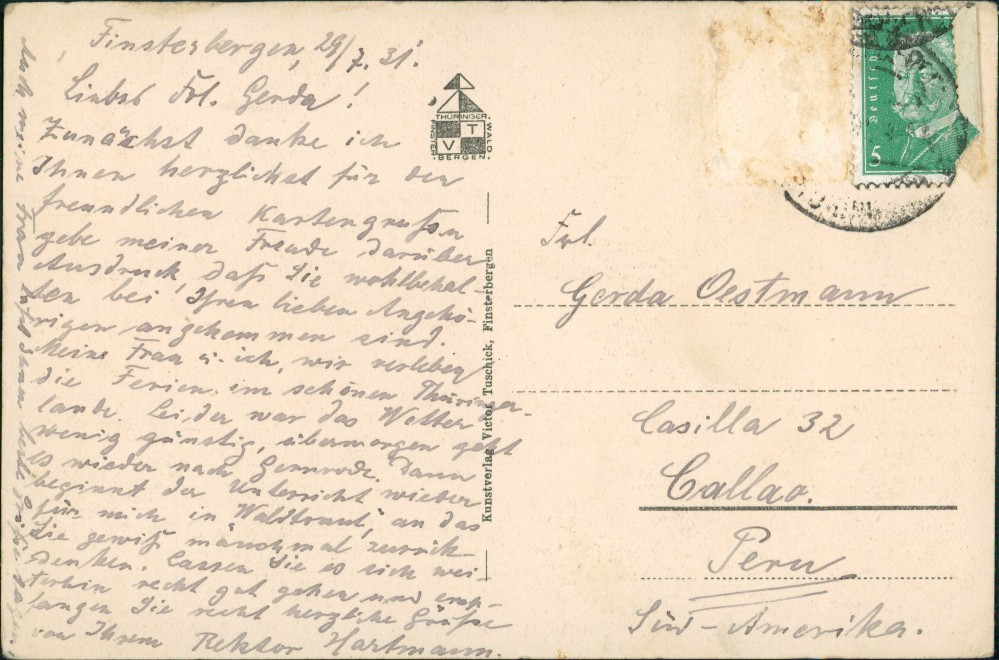 Finsterbergen, 29/7.31.
Liebes Frl. Gerda!
Zunächst danke ich
Ihnen herzlichst für den
freundlichen Kartengruß u
gebe meiner Freude darüber
Ausdruck, daß Sie wohlbehal-
ten bei Ihren lieben Angehö-
rigen angekommen sind.
Meine Frau u. ich, wir verleben
die Ferien im schönen Thüringer-
lande. Leider war das Wetter
wenig günstig, übermorgen geht
es wieder nach Gernrode. Dann
beginnt der Unterricht wieder
für mich in "Waldtraut", an das
Sie gewiß manchmal zurück-
denken. Lassen Sie es sich wei-
terhin recht gut gehen und emp-
fangen Sie recht herzliche Grüße
von Ihrem Rektor Hartmann.
Auch meine Frau läßt Ihnen beste Grüße sagen.
THÜRINGER WALD
VT
FINSTER-
BERGEN
Kunstverlag Victor Tuschick, Finsterbergen
Deutsch
5
Frl.
Gerda Oestmann
Casilla 32
Callao.
Peru
Süd-Amerika.